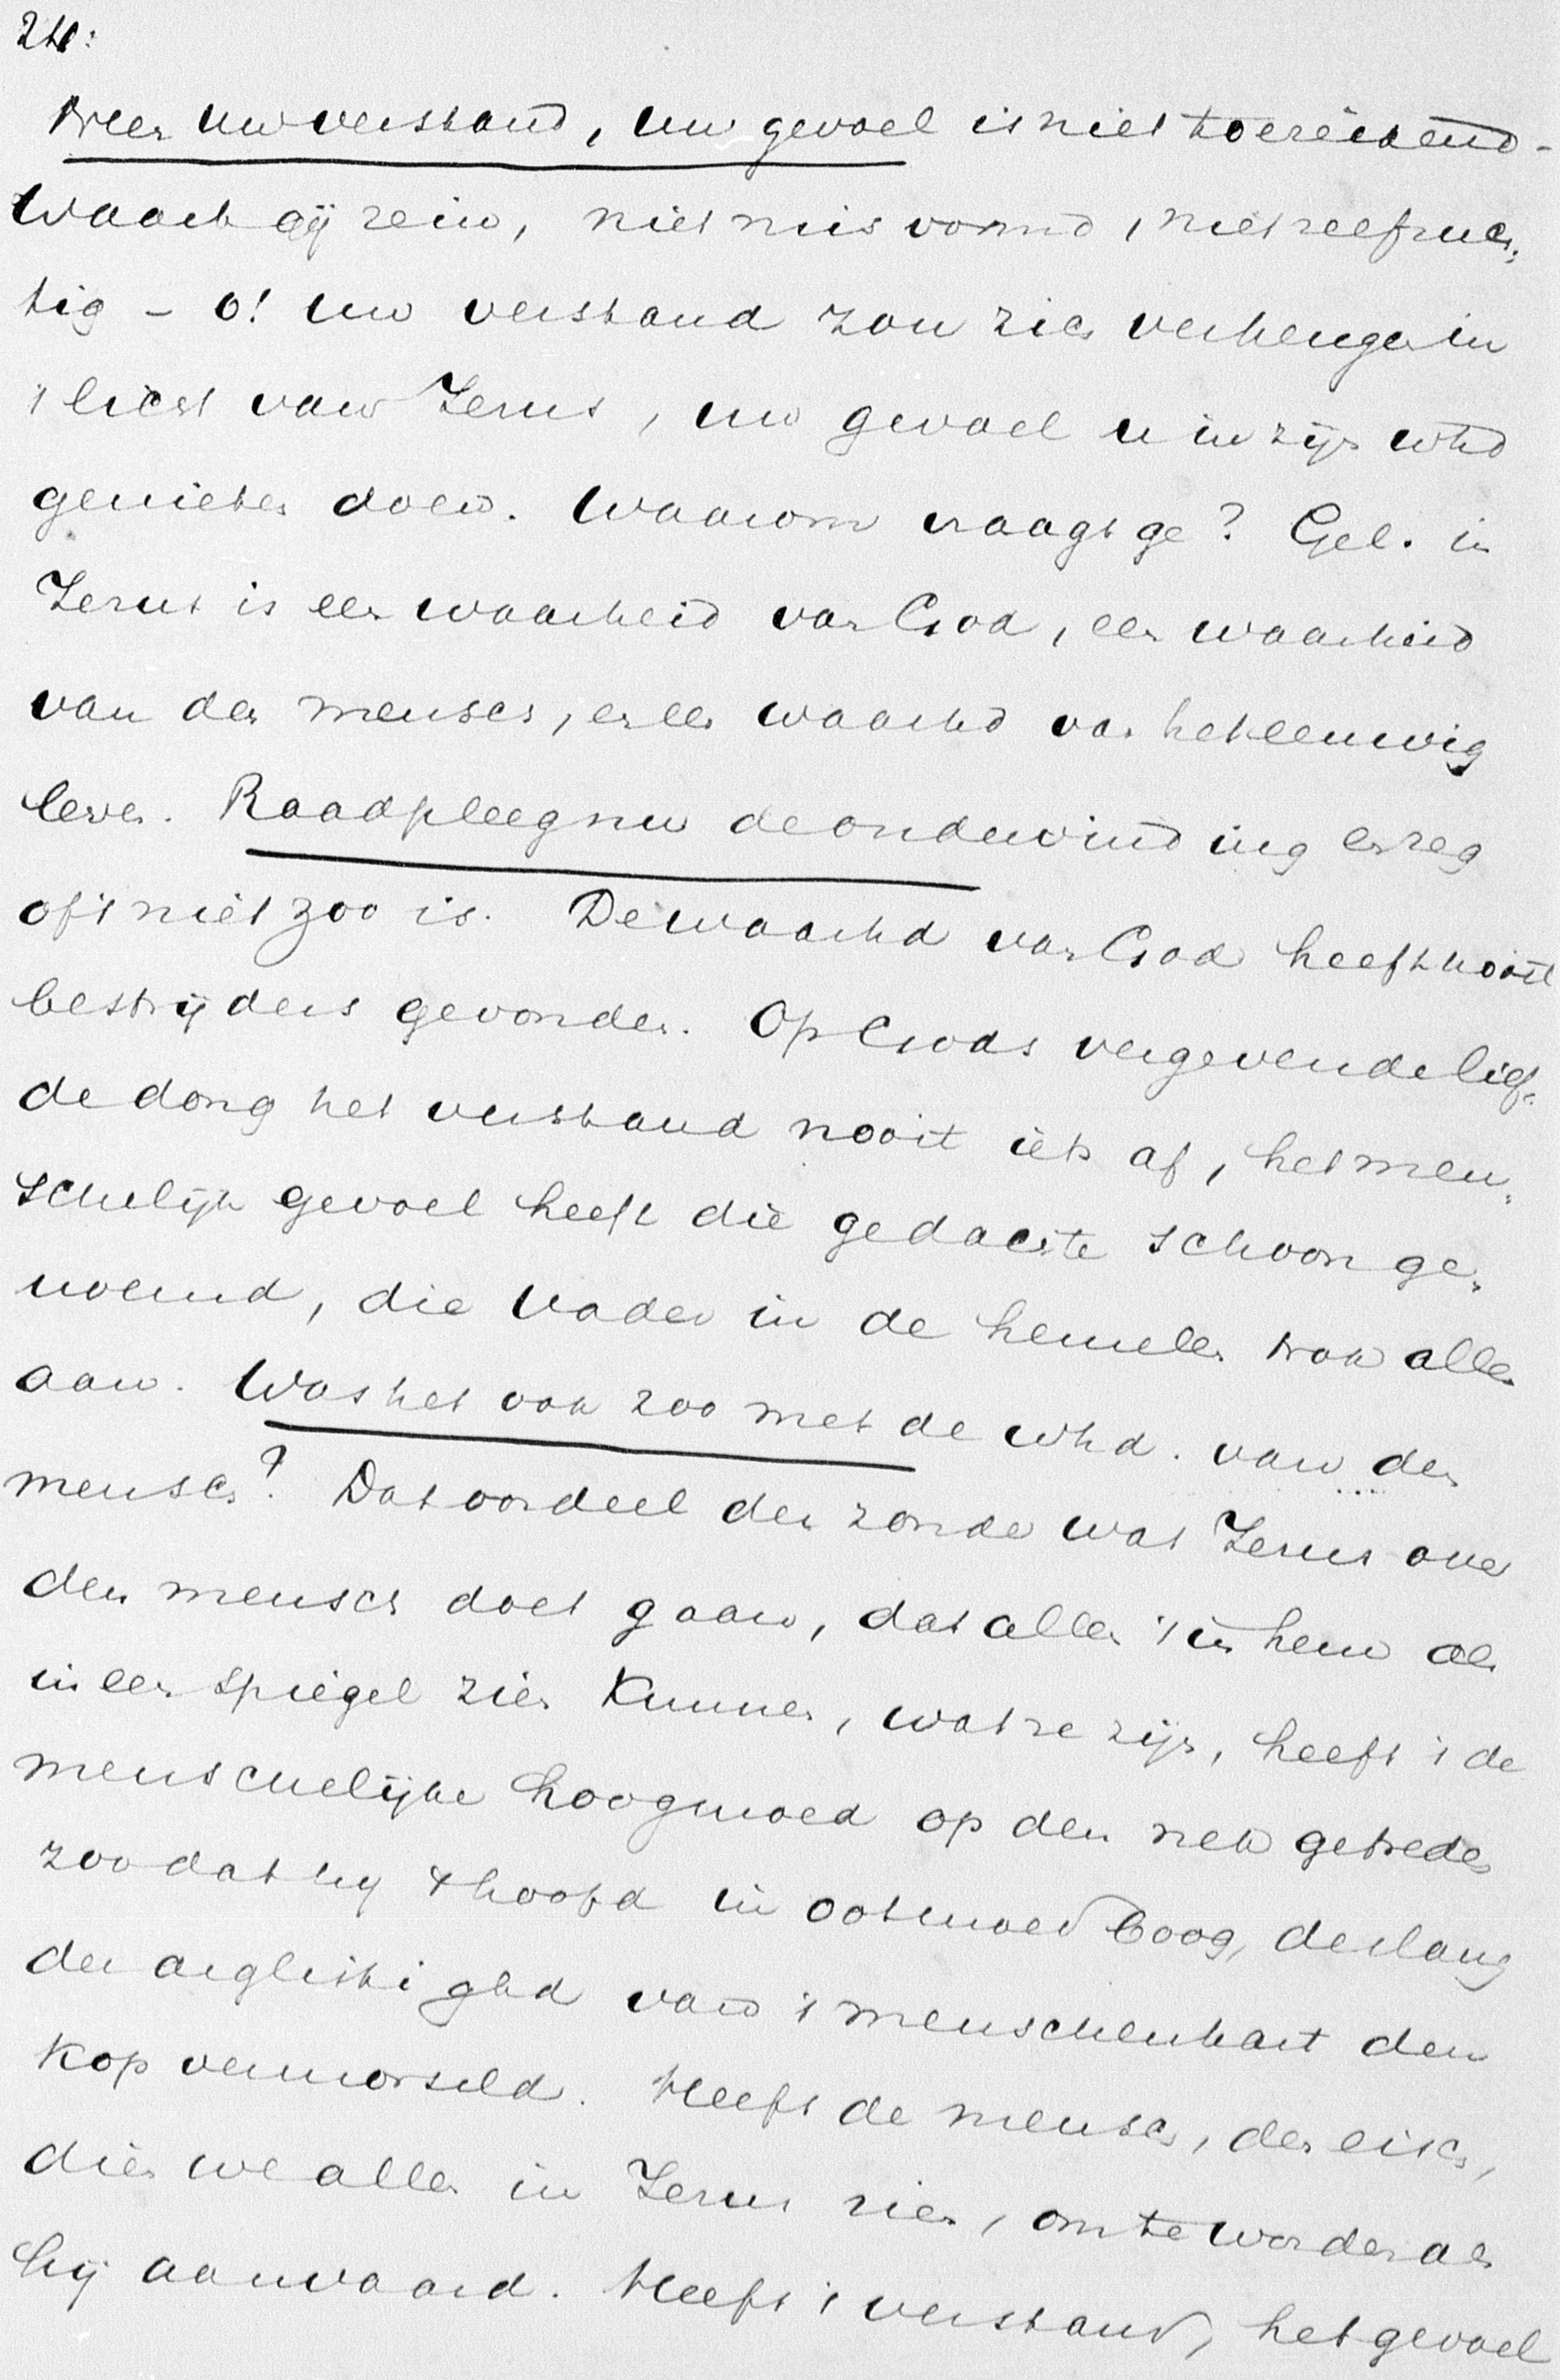 24:
Neen uw verstand, uw gevoel is niet toereikend -
Waart gij rein, niet misvormd, niet zelfzuch-
tig - o! uw verstand zou zich verheugen in
't licht van Jezus, uw gevoel u in zijn whd
genieten doen. Waarom vraagt ge? Gel. in
Jezus is een waarheid van God, een waarheid
van den mensch, en een waarhd van het eeuwig
leven. Raadpleeg nu de ondervinding en zeg
of 't niet zoo is. De waarhd van God heeft nooit
bestrijders gevonden. Op Gods vergevende lief-
de dong het verstand nooit iets af, het men-
schelijk gevoel heeft die gedachte schoon ge-
noemd, die Vader in de hemelen trok allen
aan. Was het ook zoo met de whd. van den
mensch? Dat oordeel der zonde wat Jezus over
den mensch doet gaan, dat allen 't in hem als
in een spiegel zien kunnen, wat ze zijn, heeft 't de
menschelijke hoogmoed op den nek getreden
zoodat hij 't hoofd in ootmoed boog, de slang
der arglistighd van 't menschenhart den
kop vermorseld. Heeft de mensch, den eisch,
dien we allen in Jezus zien, om te worden als
hij aanvaard. Heeft 't verstand, het gevoel